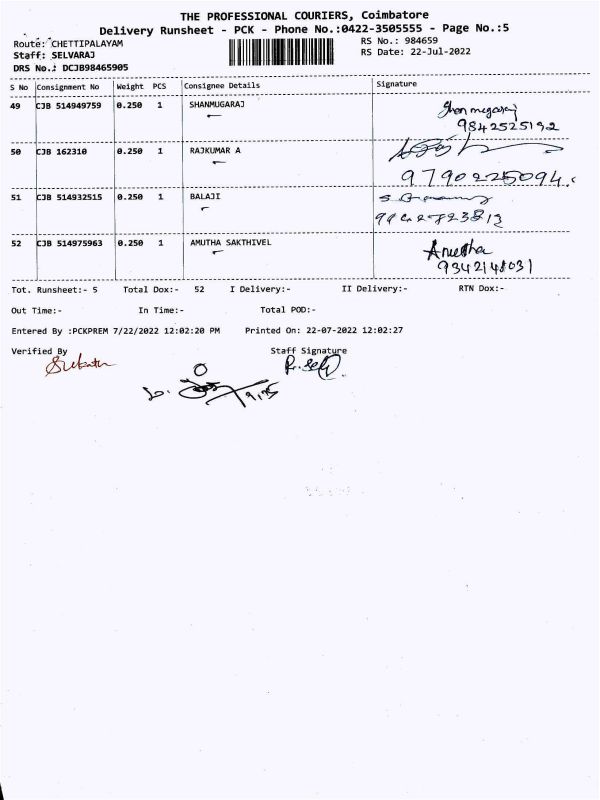 THE PROFESSIONAL COURIERS, Coimbatore
Delivery Runsheet - PCK - Phone No.:0422-3505555 - Page No.:5
Route: CHETTIPALAYAM RS No.: 984659
Staff: SELVARAJ RS Date: 22-Jul-2022
DRS No.: DCJB98465905
S No Consignment No Weight PCS Consignee Details Signature
49 CJB 514949759 0.250 1 SHANMUGARAJ Shanmugaraj
9842525192
50 CJB 162310 0.250 1 RAJKUMAR A
9790225094
51 CJB 514932515 0.250 1 BALAJI
52 CJB 514975963 0.250 1 AMUTHA SAKTHIVEL Amutha
9342148031
Tot. Runsheet:- 5 Total Dox:- 52 I Delivery:- II Delivery:- RTN Dox:-
Out Time:- In Time:- Total POD:-
Entered By :PCKPREM 7/22/2022 12:02:20 PM Printed On: 22-07-2022 12:02:27
Verified By Staff Signature